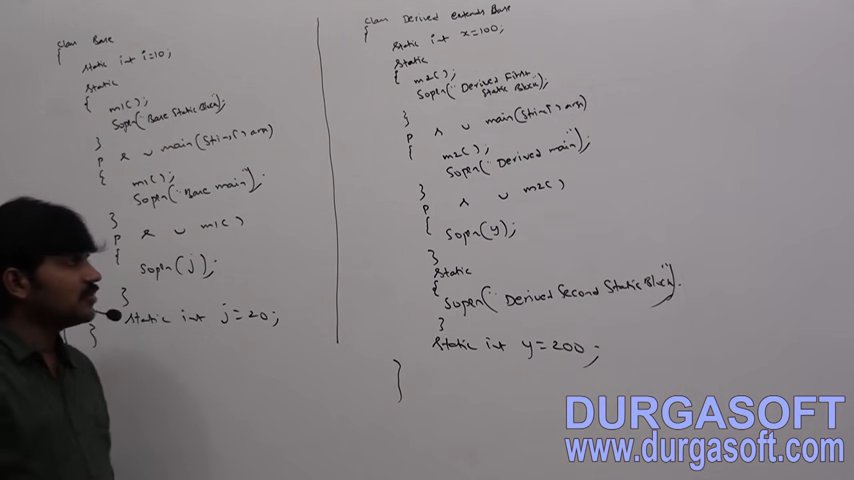 class Base
{
static int i=10;
static
{
m1();
Sopln("Base Static Block");
}
p s v main(String[] args)
{
m1();
Sopln("Base main");
}
p s v m1()
{
Sopln(j);
}
static int j=20;
}
class Derived extends Base
{
static int x=100;
static
{
m2();
Sopln("Derived First
Static Block");
}
p s v main(String[] args)
{
m2();
Sopln("Derived main");
}
p s v m2()
{
Sopln(y);
}
static
{
Sopln("Derived Second Static Block");
}
static int y=200;
}
DURGASOFT
www.durgasoft.com